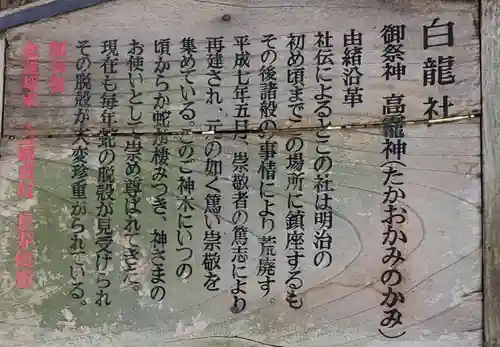 白龍社
御祭神 高龗神(たかおかみのかみ)
由緒沿革
社伝によるとこの社は明治の
初め頃までこの場所に鎮座するも
その後諸般の事情により荒廃す。
平成七年五月、崇敬者の篤志により
再建され、元の如く篤い崇敬を
集めている。このご神木にいつの
頃からか蛇が棲みつき、神さまの
お使いとして崇め尊ばれてきた。
現在も毎年蛇の脱殻が見受けられ
その脱殻が大変珍重がられている。